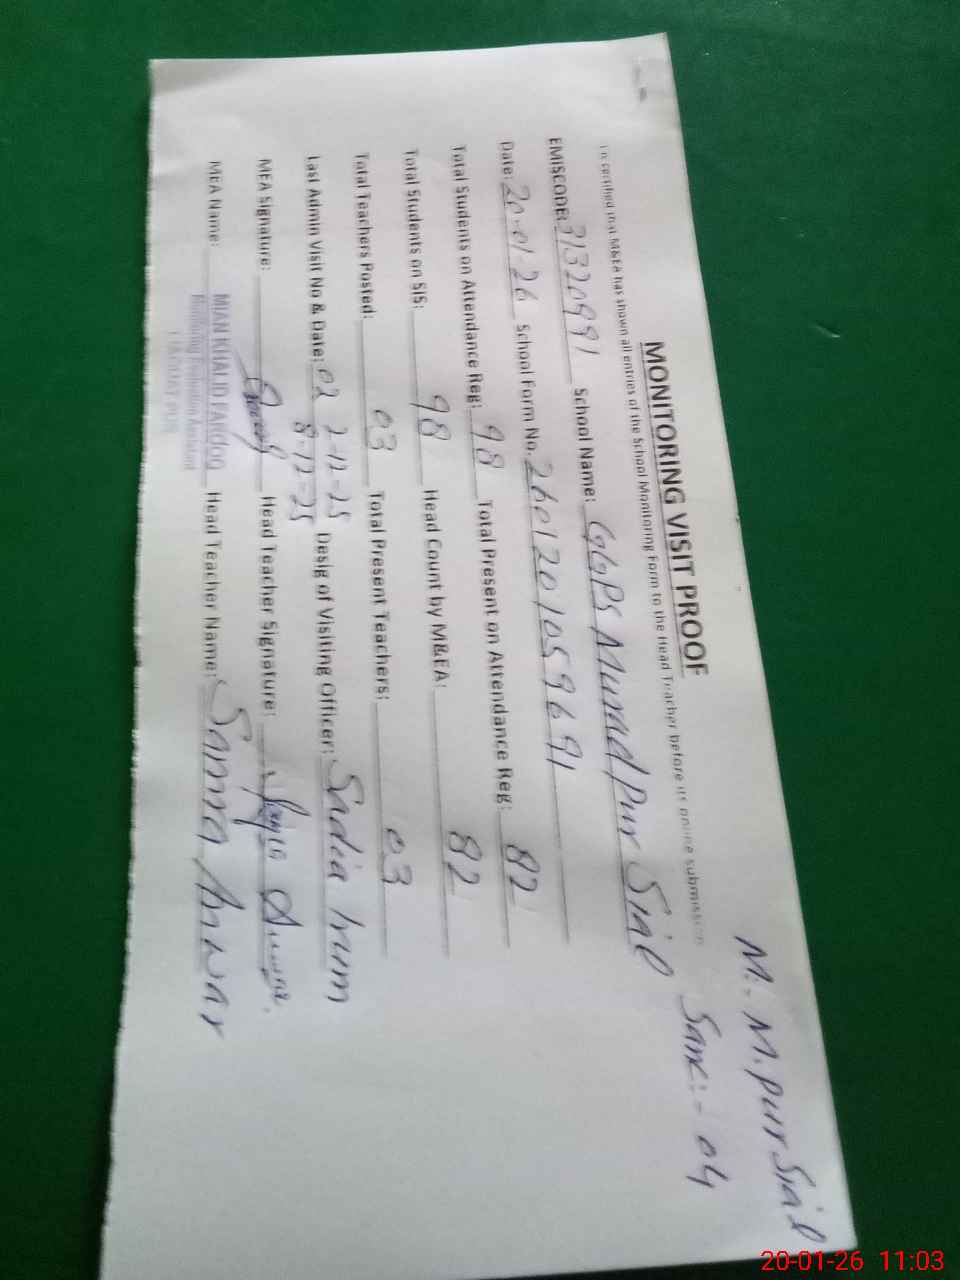 M:- M. pur Sial
MONITORING VISIT PROOF
certified that M&EA has shown all entries of the School Monitoring Form to the Head Teacher before its online submission
Sanc:- 04
EMISCODE: 31320991 School Name: GGPS Murad pur Sial
Date: 20-01-26 School Form No. 2601201059691
Total Students on Attendance Reg: 98 Total Present on Attendance Reg: 82
Total Students on SIS: 98 Head Count by M&EA: 82
Total Teachers Posted: 03 Total Present Teachers: 03
Last Admin Visit No & Date: 02 2-12-25 Desig of Visiting Officer: Sadia Irum
8-12-25
MEA Signature: Head Teacher Signature:
MEA Name: MIAN KHALID FAROOQ Head Teacher Name: Samra Anwar
Monitoring Evaluation Assistant
LIAQUAT PUR
20-01-26 11:03